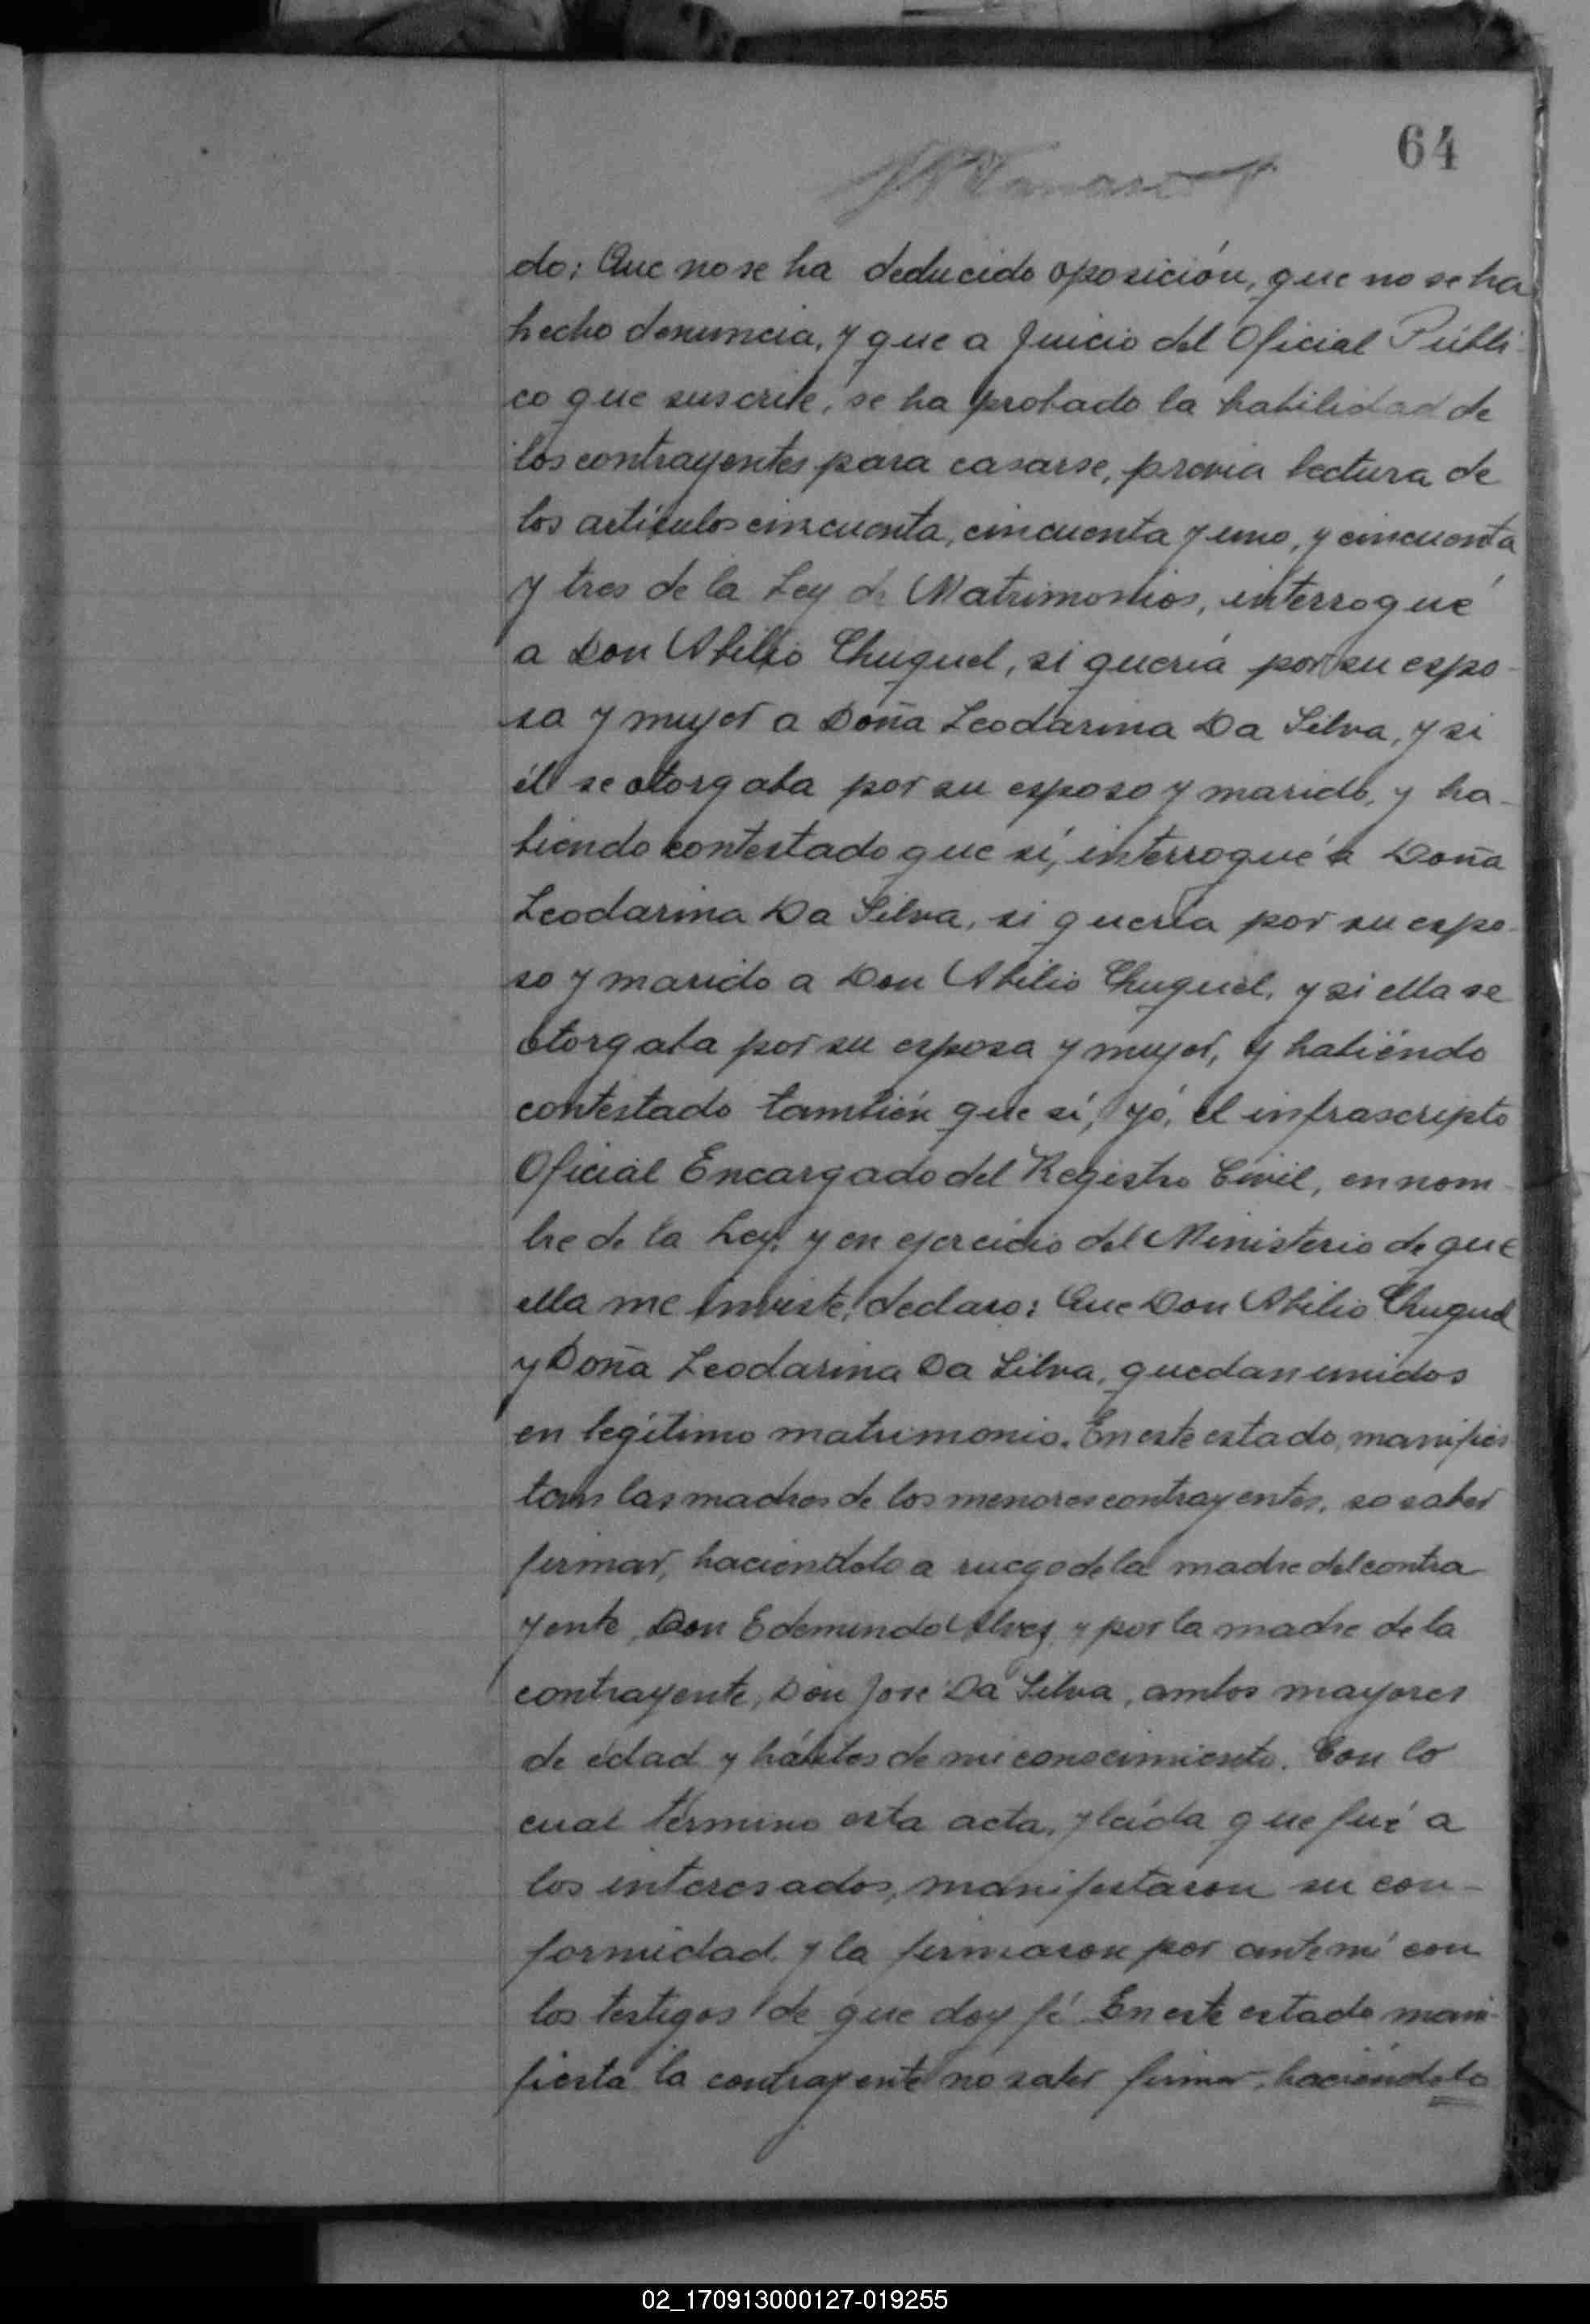 64
do: Que no se ha deducido oposición, que no se ha
hecho denuncia, y que a juicio del Oficial Públi-
co que suscribe, se ha probado la habilidad de
los contrayentes para casarse, previa lectura de
los artículos cincuenta, cincuenta y uno, y cincuenta
y tres de la Ley de Matrimonios, interrogué
a Don Abilio Chuguel, si quería por su espo-
sa y mujer a Doña Leodarina Da Silva, y si
él se otorgaba por su esposo y marido, y ha-
biendo contestado que sí, interrogué a Doña
Leodarina Da Silva, si quería por su espo-
so y marido a Don Abilio Chuguel, y si ella se
otorgaba por su esposa y mujer, y habiéndo
contestado también que sí, yó, el infrascripto
Oficial Encargado del Registro Civil, en nom-
bre de la Ley, y en ejercicio del Ministerio de que
ella me inviste, declaro: Que Don Abilio Chuguel
y Doña Leodarina Da Silva, quedan unidos
en legítimo matrimonio. En este estado, manifies
tan las madres de los menores contrayentes, no saber
firmar, haciéndolo a ruego de la madre del contra-
yente, Don Edemundo Alvez, y por la madre de la
contrayente, Don José Da Silva, ambos mayores
de edad y hábiles de mi conocimiento. Con lo
cual termino esta acta, y leída que fué a
los interesados, manifestaron su con-
formidad y la firmaron por ante mí con
los testigos de que doy fé. En este estado mani-
fiesta la contrayente no saber firmar, haciéndolo
02_170913000127-019255